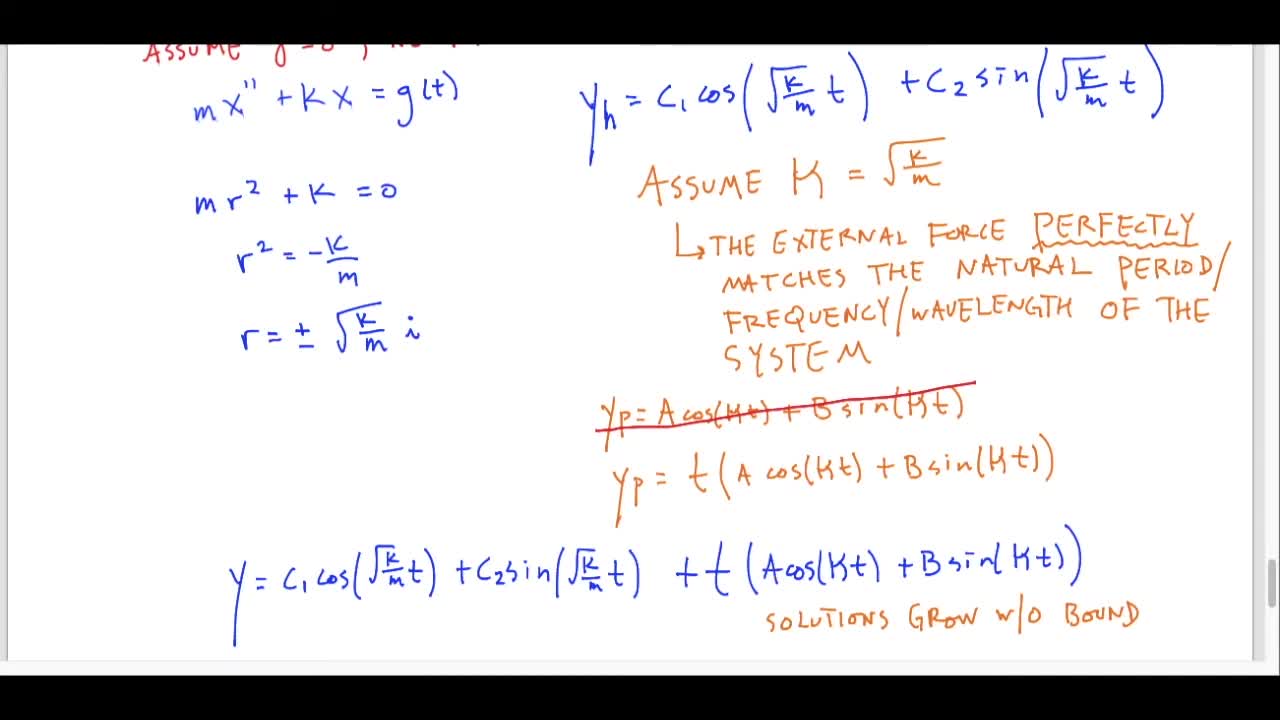 ASSUME γ=0
mx'' + kx = g(t)
mr² + k = 0
r² = -k/m
r = ± √(k/m) i
y_h = C₁ cos(√(k/m) t) + C₂ sin(√(k/m) t)
ASSUME K = √(k/m)
↳ THE EXTERNAL FORCE PERFECTLY
MATCHES THE NATURAL PERIOD/
FREQUENCY/WAVELENGTH OF THE
SYSTEM
y_p = A cos(Kt) + B sin(Kt)
y_p = t(A cos(Kt) + B sin(Kt))
y = C₁ cos(√(k/m) t) + C₂ sin(√(k/m) t) + t(A cos(Kt) + B sin(Kt))
SOLUTIONS GROW W/O BOUND